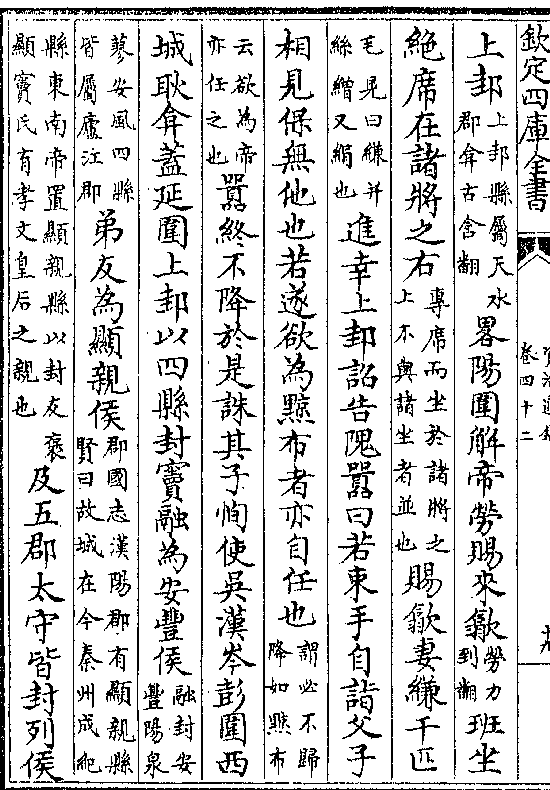 欽定四庫全書
卷四十二
上邽上邽縣屬天水郡弇古含翻畧陽圍解帝勞賜來歙勞力到翻班坐
絶席在諸將之右專席而坐於諸將之上不與諸坐者並也賜歙妻縑千匹
毛晃曰縑并絲繒又絹也進幸上邽詔告隗囂曰若束手自詣父子
相見保無他也若遂欲為黥布者亦自任也謂必不歸降如黥布
云欲為帝亦任之也囂終不降於是誅其子恂使吳漢岑彭圍西
城耿弇蓋延圍上邽以四縣封竇融為安豐侯融封安豐陽泉
蓼安風四縣皆屬廬江郡弟友為顯親侯郡國志漢陽郡有顯親縣賢曰故城在今秦州成紀
縣東南帝置顯親縣以封友顯竇氏有孝文皇后之親也褒及五郡太守皆封列侯